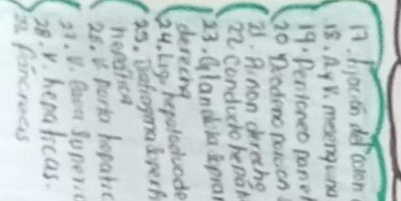 17. Fijación del colon
18. A y V. mesing una
19. Peritoneo pariet
20 Duodeno porcion
21. Riñon derecho
22 Conducto hepát
23. Glandula supra
derecha
24. Lig. hepatoduode
25. Diafragma superfi
hepática
26. V. porta hepatic
27. V. cava superio
28. V. hepaticas.
páncreas